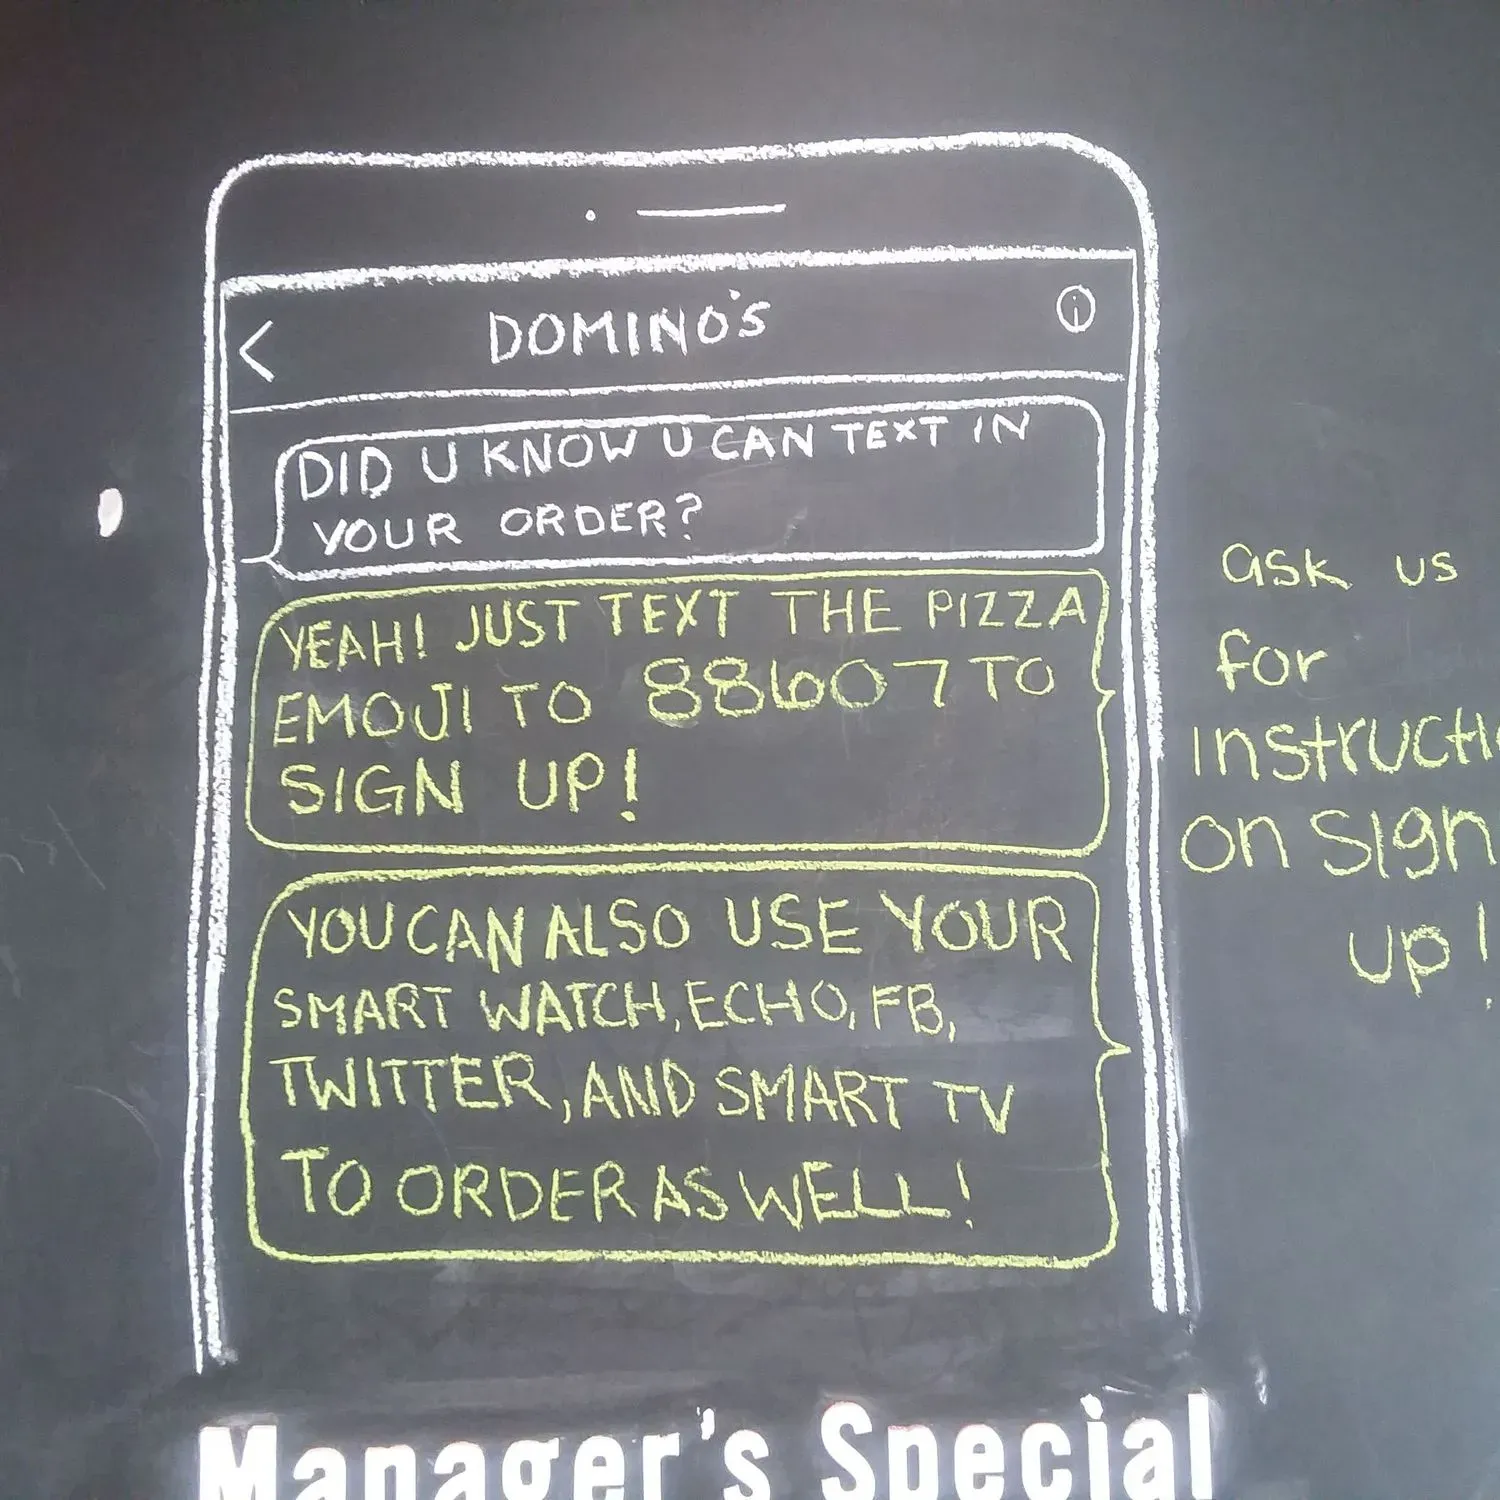 DOMINO'S
DID U KNOW U CAN TEXT IN
YOUR ORDER?
YEAH! JUST TEXT THE PIZZA
EMOJI TO 88607 TO
SIGN UP!
YOU CAN ALSO USE YOUR
SMART WATCH, ECHO, FB,
TWITTER, AND SMART TV
TO ORDER AS WELL!
ask us
for
instructi
on sign
up!
Manager's Special